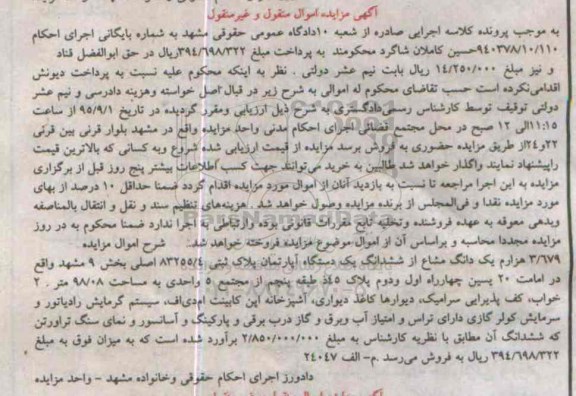 آگهی مزایده اموال منقول و غیرمنقول
به موجب پرونده کلاسه اجرایی صادره از شعبه ۱۰دادگاه عمومی حقوقی مشهد به شماره بایگانی اجرای احکام
۹۴۰۳۷۸/۱۰/۱۱۰حسین کاملان شاگرد محکومند به پرداخت مبلغ ۳۹۴/۶۹۸/۳۲۲ریال در حق ابوالفضل قناد
و نیز مبلغ ۱۴/۲۵۰/۰۰۰ ریال بابت نیم عشر دولتی . نظر به اینکه محکوم علیه نسبت به پرداخت دیونش
اقدامی‌نکرده است حسب تقاضای محکوم له اموالی به شرح زیر در قبال اصل خواسته وهزینه دادرسی و نیم عشر
دولتی توقیف توسط کارشناس رسمی‌دادگستری به شرح ذیل ارزیابی ومقرر گردیده در تاریخ ۹۵/۹/۱ از ساعت
۱۱:۱۵الی ۱۲ صبح در محل مجتمع قضائی اجرای احکام مدنی واحد مزایده واقع در مشهد بلوار قرنی بین قرنی
۲۲و۲۴از طریق مزایده حضوری به فروش برسد مزایده از قیمت ارزیابی شده شروع وبه کسانی که بالاترین قیمت
راپیشنهاد نمایند واگذار خواهد شد طالبین به خرید می‌توانند جهت کسب اطلاعات بیشتر پنج روز قبل از برگزاری
مزایده به این اجرا مراجعه تا نسبت به بازدید آنان از اموال مورد مزایده اقدام گردد ضمنا حداقل ۱۰ درصد از بهای
مورد مزایده نقدا و فی‌المجلس از برنده مزایده وصول خواهد شد . هزینه‌های تنظیم سند و نقل و انتقال بالمناصفه
وبدهی معوقه به عهده فروشنده وتخلیه تابع مقررات قانونی بوده وارتباطی به اجرا ندارد ضمنا محکوم به در روز
مزایده مجددا محاسبه و براساس آن از اموال موضوع مزایده فروخته خواهد شد. شرح اموال مزایده
۳/۶۷۹ هزارم یک دانگ مشاع از ششدانگ یک دستگاه آپارتمان پلاک ثبتی ۸۳۲۵۵/۴ اصلی بخش ۹ مشهد واقع
در امامت ۲۰ پسین چهارراه اول ودوم پلاک ۴۵ طبقه پنجم از مجتمع ۵ واحدی به مساحت ۹۸/۰۸ متر . ۲
خواب، کف پذیرایی سرامیک، دیوارها کاغذ دیواری، آشپزخانه اپن کابینت ام‌دی‌اف، سیستم گرمایش رادیاتور و
سرمایش کولر گازی دارای تراس و امتیاز آب وبرق و گاز درب برقی و پارکینگ و آسانسور و نمای سنگ تراورتن
که ششدانگ آن مطابق با نظریه کارشناس به مبلغ ۲/۸۵۰/۰۰۰/۰۰۰ برآورد شده است که به میزان فوق به مبلغ
۳۹۴/۶۹۸/۳۲۲ ریال به فروش می‌رسد .م- الف ۲۴۰۴۷
دادورز اجرای احکام حقوقی وخانواده مشهد - واحد مزایده